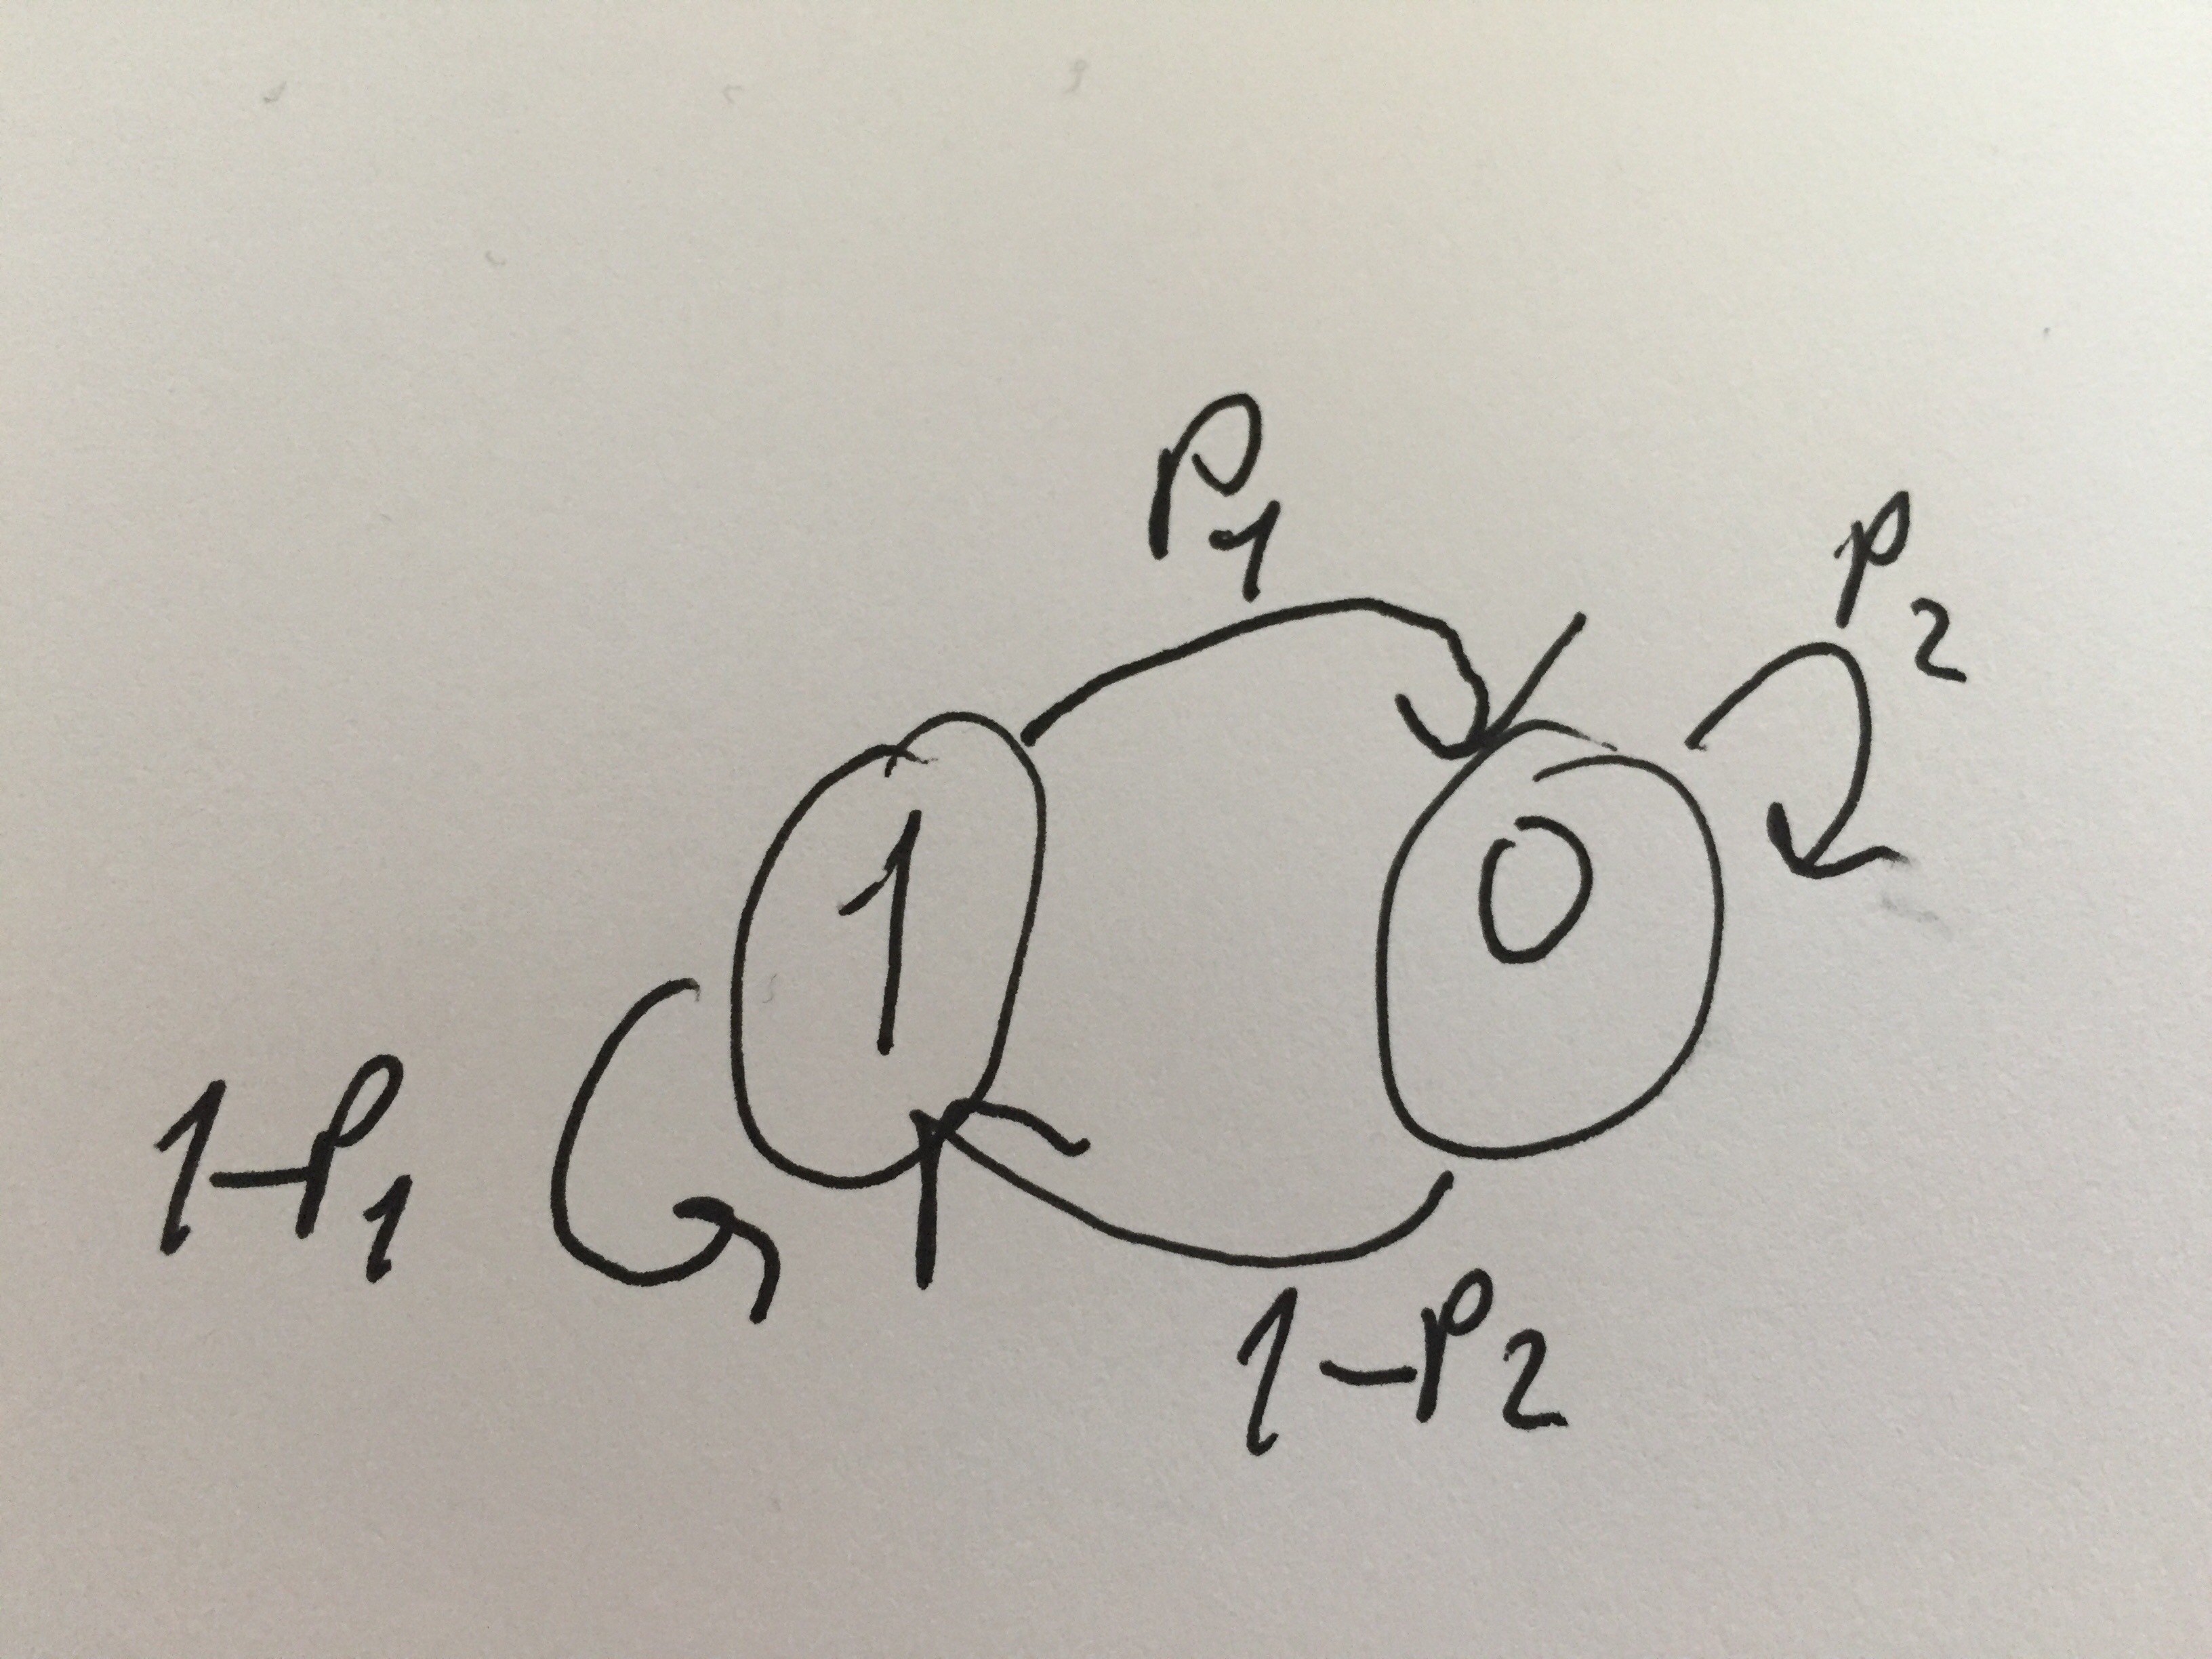 P1
P2
1
0
1-P1
1-P2